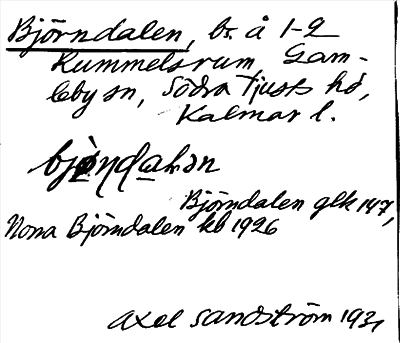 Björndalen, br. å 1-2
Rummelsrum, Gam-
leby sn, Södra Tjusts hd,
Kalmar l.
Björndalen glk 147,
Norra Björndalen kb 1926
Axel Sandström 1931